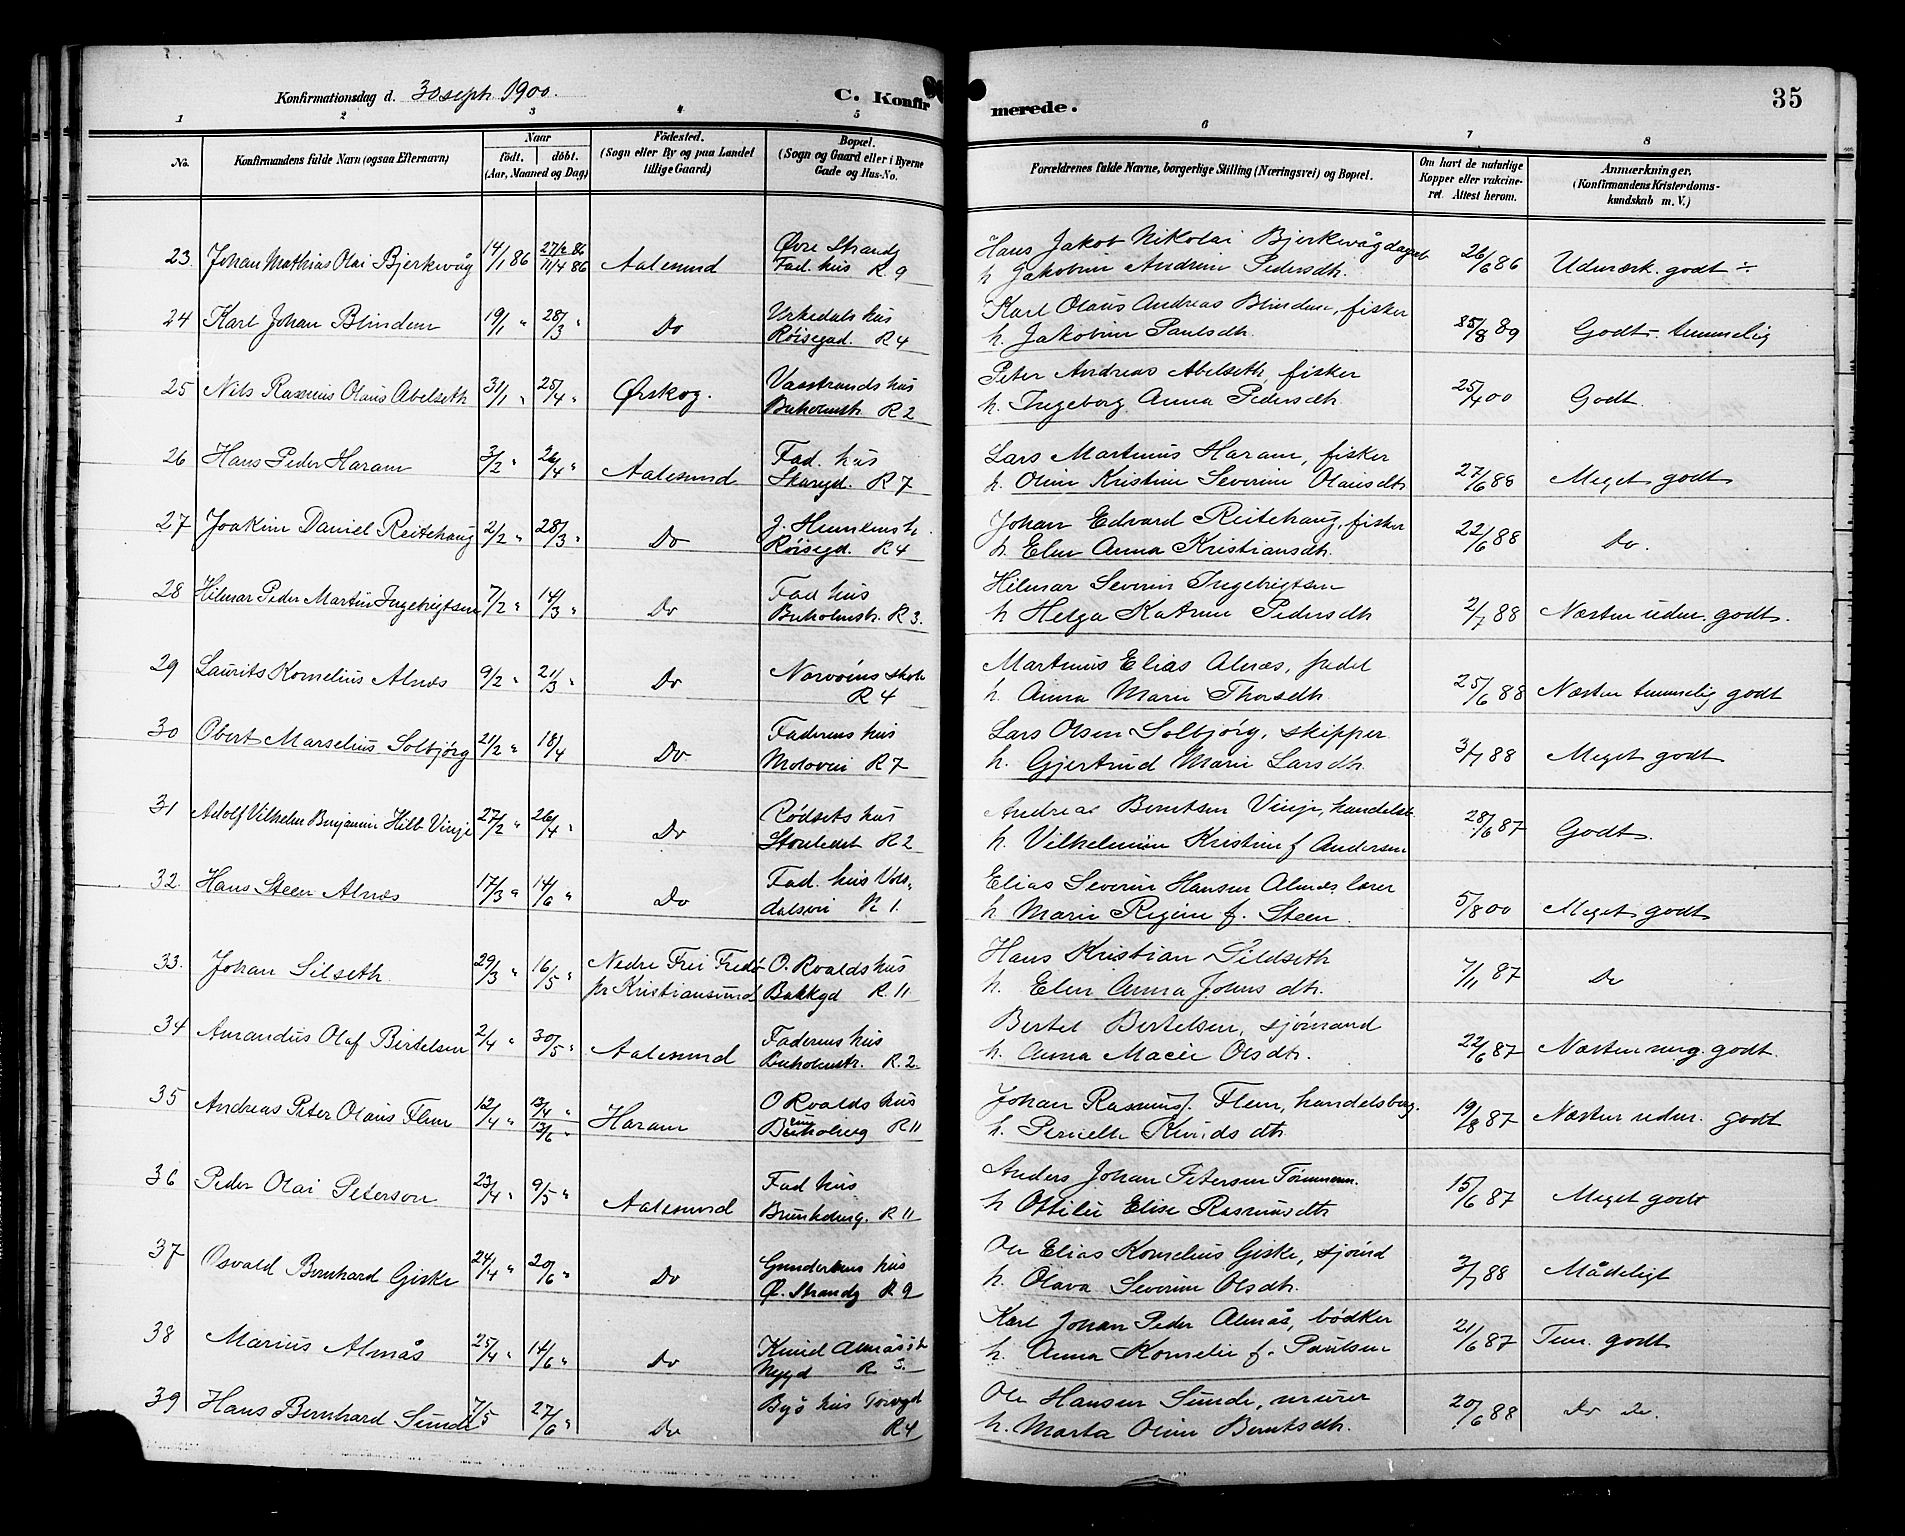 35
Konfirmationsdag d. 30 sept. 1900.
C. Konfirmerede.
1 2 3 4 5 6 7 8
No. Konfirmandens fulde Navn (ogsaa Efternavn) Naar født. døbt. (Aar, Maaned og Dag) Fødested. (Sogn eller By og paa Landet tillige Gaard) Bopæl. (Sogn og Gaard eller i Byerne Gade og Hus-No. Forældrenes fulde Navne, borgerlige Stilling (Næringsvei) og Bopæl. Om havt de naturlige Kopper eller vakcineret. Attest herom. Anmærkninger. (Konfirmandens Kristendomskundskab m. V.)
23. Johan Mathias Olai Bjerkevåg 14/1 86 27/2 86 11/4 86 Aalesund Øvre Strandg Fad. hus R 9
Hans Jakob Nikolai Bjerkevåg
h. Jakobine Andrine Pedersdtr. 26/6 86 Udmærk. godt ÷
24 Karl Johan Blindem 19/1 " 28/3 " Do Urkedals hus Røisegad. R 4
Karl Olaus Andreas Blindem, fisker
h. Jakobine Paulsdtr. 25/8 89 Godt - temmelig
25 Nils Rasmus Olaus Abelseth 31/1 " 25/4 " Ørskog. Vasstrands hus Buholmstr. R 2
Peter Andreas Abelseth, fisker
h. Ingeborg Anna Pedersdtr. 25/4 00 Godt.
26 Hans Peder Haram 3/2 " 26/4 " Aalesund Fad. hus Skaregd. R 7
Lars Martinus Haram, fisker
h. Oline Kristine Severine Olausdtr 27/6 88 Meget godt
27 Joakim Daniel Reitehaug 2/2 " 28/3 " Do Røisegd. R 4
Johan Edvard Reitehaug, fisker
h. Elen Anna Kristiansdtr. 22/6 88 Do.
28 Hilmar Peder Martin Ingebrigtsen 7/2 " 14/3 " Do Fad hus Buholmstr. R 3.
Hilmar Severin Ingebrigtsen
h Helga Katrine Pedersdtr 2/7 88 Næsten udm. godt.
29 Laurits Kornelius Alnæs 9/2 " 21/3 " Do R 4
Martinus Elias Alnæs,
h. Anna Marie Thorsdtr. 25/6 88 Næsten temmelig godt
30 Obert Marselius Solbjørg 21/2 " 18/4 Do Faderens hus Moloveien R 7
Lars Olsen Solbjørg, skipper
h. Gjertrud Marie Larsdtr. 3/7 88 Meget godt
31 Adolf Vilhelm Benjamin Hilb Vinje 27/2 " 26/4 " Do Rødsets hus Storhedet R 2
Andreas Berntsen Vinje, handelsb.
h. Vilhelmine Kristine f Andersen 28/6 87 Godt.
32. Hans Steen Alnæs 17/3 " 14/6 " Do Fad. hus Volsdalsvei R 1.
Elias Severin Hansen Alnæs lærer
h Marie Regine f. Steen. 5/8 00 Meget godt
33. Johan Silseth 29/3 " 16/5 " Nedre Frei Fredø pr Kristiansund O. Rvalds hus Bakkgd R. 11
Hans Kristian Sildseth
h. Elen Anna Johns dtr. 7/11 87 Do
34 Amandus Olaf Bertelsen 2/4 " 30/5 " Aalesund Faderens hus Buholmstr. R. 2.
Bertel Bertelsen, sjømand
h. Anna Marie Olsdtr. 22/6 87 Næsten meg. godt.
35 Andreas Peter Olaus Flem 12/4 " 13/4 " 13/6 " Haram O Rvalds hus R 11
Johan Rasmus f. Flem, handelsborg.
h. Knuds dtr 19/8 87 Næsten udm. godt
36 Peder Olai Peterson 23/4 " 9/5 " Aalesund Fad hus R 11
Anders Johan Petersen Tømmerm.
h Ottilie Elise Rasmusdtr 15/6 87 Meget godt
37 Osvald Bernhard Giske 24/4 " 20/6 " Do Gundersens hus Ø. Strandg R 9
Ole Elias Kornelius Giske, sjømd
h. Olava Severine Olsdtr. 3/7 88 Mådeligt
38 Marius Almås 25/4 " 14/6 " Do Knud Almås's h Nygd R 3.
Karl Johan Peder Almås, bødker
h. Anna Kornelie f. Paulsen 21/6 87 Tem. godt
39 Hans Bernhard Sunde 7/5 27/6 " Do Bys hus Torvgd R 4
Ole Hansen Sunde, murer
h. Marta Oline Berntsdtr. 20/6 88 Do Do.